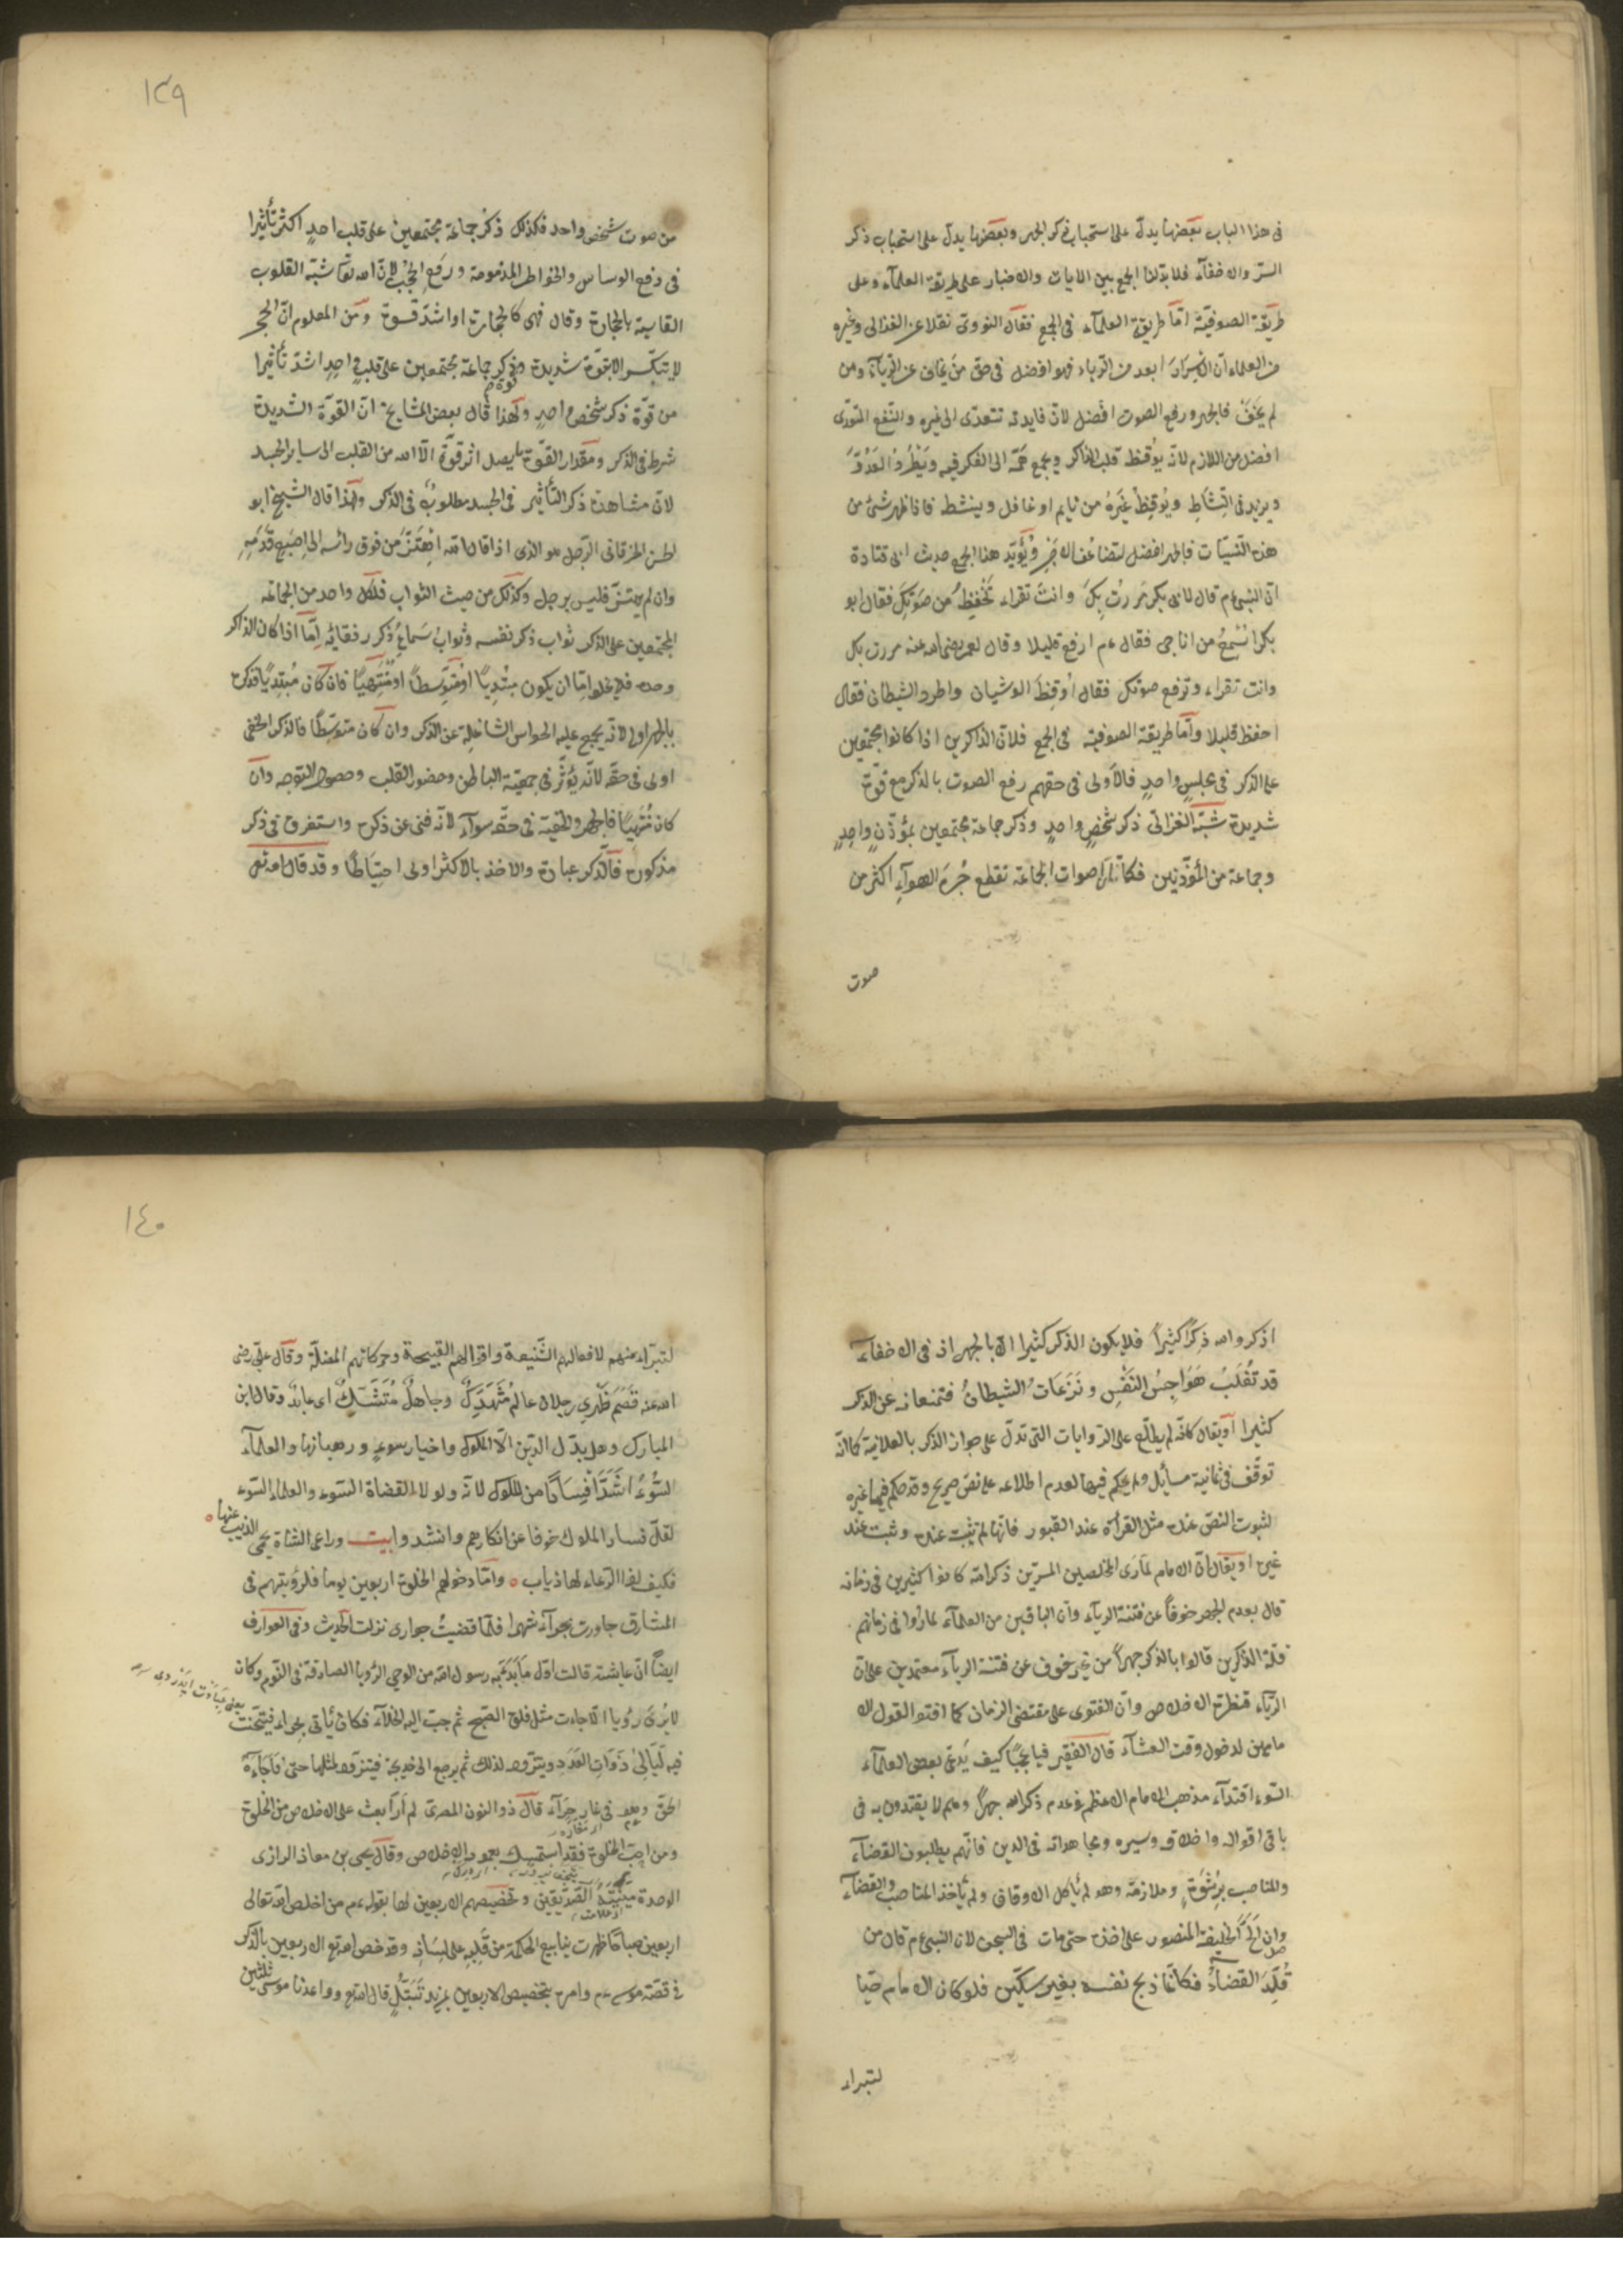 فى هذا الباب بعضها يدلّ على استحباب ذكر الجهر وبعضها يدلّ على استحباب ذكر
السّر والاخفآء فلا بدّ لنا الجمع بين الايات والاخبار على طريقة العلمآء وعلى
طريقة الصوفيّة امّا طريقة العلمآء فى الجمع فقال النووى نقلا عن الغزالى وغيره
من العلماء انّ الاسرار ابعد من الرّياء فهو افضل فى حق من يخاف عن الريآء ومن
لم يخف فالجهر ورفع الصوت افضل لانّ فايدته تتعدّى الى غيره والنّفع المتعدّى
افضل من اللازم لانّه يُوقظ قلب الذاكر ويجمع همّه الى الفكر فيه ويَطْرُدُ العَدُوَّ
ويزيد فى النّشاطِ ويُوقِظُ غَيرَهُ من نايم او غافل وينشط فاذا ظهر شىٔ من
هذه النّيّات فالجهر افضل لتضاعُف الاجرِ ويُؤيّد هذا الجمع حديث ابى قتادة
انّ النبىّ عم قال لابى بكر مَررتُ بكَ وانتَ تقراء تَخْفِظُ من صَوتِكَ فقال ابو
بكر اُسْمِعُ من اناجى فقال عم ارفع قليلا وقال لعمر رضى الله عنه مررت بك
وانت تقراء وترفع صوتك فقال اُوقِظَ الوشنان واطرد الشيطان فقال
احفظ قليلا وامّا طريقة الصوفيّة فى الجمع فلانّ الذاكرين اذا كانوا مجتمعين
على الذكر فى مجلسٍ واحدٍ فالاَولى فى حقهم رفع الصوت بالذكر مع قوّة
شديدة شبّه الغزالى ذكر شخصٍ واحدٍ وذكر جماعة مجتمعين بمؤذّنٍ واحِدٍ
وجماعة من المؤذّنين فكما انّ اصوات الجماعة تقطع جُرمَ الهوآءِ اكثر من
صوت
١٣٩
من صوت شخص واحد فكذلك ذكرُ جماعة مجتمعين على قلب احدٍ اكثر تأثيرا
فى دفع الوساس والخواطر المذمومة ورَفعِ الحُجُب لانّ الله تعا شبّه القلوب
القاسية بالحجارة وقال فهى كالحجارة او اشدّ قسوة ومن المعلوم انّ الحجر
لا يتكسّر الا بقوّة شديدة وقوة ذكر جماعة مجتمعين على قلبٍ واحدٍ اشدّ تأثيرا
من قوّة ذكر شخصٍ واحدٍ ولهذا قال بعض المشايخ انّ القوّة الشديدة
شرط فى الذكر ومقدار القوّة ما يصل اثر قوّة الّا الله من القلب الى ساير الجسد
لانّ مشاهدة ذكر التأثير فى الجسد مطلوبٌ فى الذكر ولهذا قال الشيخ ابو
الحسن الخرقانى الرّجل هو الذى اذا قال الله اِهْتَزَّ من فوق رائسه الى اِصبَعِ قَدَمِهِ
وان لم يهتزّ فليس برجل وكذلك من حيث الثواب فلكل واحد من الجماعة
المجتمعين على الذكر ثواب ذكر نفسه وثوابُ سَماعِ ذكر رفقائه امّا اذا كان الذاكر
وحده فلا يخلو امّا ان يكون مبْتدِيًا او مُتَوَسِّطًا او مُنْتَهِيًا فان كان مُبْتَدِيًا فذكره
بالجهر اولى لانّه يجمع عليه الحواس الشاغلة عن الذكر وان كان متوسّطا فالذكر الخفى
اولى فى حقّه لانّه يُؤثّر فى جمعيّة الباطن وحضور القلب وحصول التوجه وان
كان مُنْتَهيًا فالجهر والخفية فى حقّه سوآء لانّه فنى عن ذكره واستغرق فى ذكر
مذكوره فالذكر عبادة والاخذ بالاكثر اولى احتِيَاطًا وقد قال الله تعى
اذكروا الله ذِكرًا كثيرًا فلا يكون الذكر كثيرا الّا بالجهر اذ فى الاخفآء
قد تُغْلَبُ هَوَاجِسُ النَّفْسِ ونَزَعَاتُ الشيطانُ فتمنعانه عن الذكر
كثيرا اَو يقال كانّه لم يطّلع على الرّوايات التى تدلّ على جواز الذكر بالعلانية كما انّه
توقّف فى ثمانية مسآئل ولم يحكم فيها لعدم اطلاعه على نصّ صريح وقد حكم فيها غيره
لثبوت النصّ عنده مثل القرأة عند القبور فانّها لم تثبت عنده وثبت عند
غيره او يقال انّ الامام لمّا رَى المخلصين المسرّين ذكر الله كانوا كثيرين فى زمانه
قال بعدم الجهر خوفاً عن فتنة الريآء وان الباقين من العلمآء لما رأوا فى زمانهم
قلة الذاكرين قالوا بالذكر جهراً من غير خوف عن فتنة الريآء معتمدين على ان
الريآء قنطرة الاخلاص وانّ الفتوى على مقتضى الزمان كما افتو القول الا
مامين لدخول وقت العشآء قال الفقير فيا عَجَبًا كيف يَدعّى بعض العلمآء
السّوء اقتدآء مذهب الامام الاعظم فى عدم ذكر الله جهراً وهم لا يقتدون به فى
باقى اقواله واخلاقه وسيره ومجاهداته فى الدين فانّهم يطلبون القضآء
والمناصب بِرُشْوَةٍ وملازمة وهو لم يأكل الاوقاف ولم يأخذ المناصب والقضآء
وان اَلحَّ الخليفة المنصور على اخذه حتى مات فى السجن لان النبى عم قال من
قُلِّدَ القضآءُ فكانّما ذبح نفسه بغير سكّين فلو كان الامام حيّا
لتبراء
١٤٠
لتبرّاء منهم لافعالهم الشّنيعة واقوالهم القبيحة وحركاتهم المضلّة وقال علىّ رضى
الله عنه قَصَمَ ظَهْرِى رجلان عالمٌ مُتَهَتِّكٌ وجاهلٌ مُتَنَسِّكٌ اى عابدٌ وقال ابن
المبارك وهل يدّل الدّين الّا الملوك واخيار سوءٍ ورهبانها والعلمآء
السُّوُءُ اَشَدَّ فِسَادًا من الملوك لانّه ولولا القضاة السّوء والعلماء السّوء
لقلّ فساد الملوك خوفا عن انكارهم وانشدوا بيت وراعى الشاة يحمى الذيب عنها ه
فكيف اذا الرّعاء لها ذياب ه وامّا دخولهم الخلوة اربعين يوما فلرؤيتهم فى
المشارق جاورت بحرآء شهرا فلمّا قضيتُ جوارى نزلت الحديث وفى العوارف
ايضاً انّ عايشة قالت اوّل ما بُدئ به رسول الله من الوحى الرُؤيا الصادقة فى النّوم وكان
لا يُرَى رُؤيا الّا جاءت مثل فلق الصّبح ثم حبّ اليه الخلآء فكان يأتى بحراء فيتحنّث
فيه لَيَالِىَ ذَوَاتِ العَدَد ويتزوّد لذلك ثم يرجع الى خديجة فيتزوّد لمثلها حتى فَاجَأَهُ
الحقّ وهو فى غار حِرَآء قال ذو النون المصرى لم اَر ابعث على الاخلاص من الخلوة
ومن احبّ الخلوة فقد استمسك بعمود الاخلاص وقال يحيى بن معاذ الرازى
الوحدة مُنْيَةُ الصّدّيقين وتخصيصهم الاربعين لها بقوله عم من اخلص لله تعالى
اربعين صباحًا ظهرت ينابيع الحكمة من قَلِبِه على لِسَانِه وقد خص الله تع الاربعين بالذكر
فى قصّة موسى عم وامره بتخصيص الاربعين بمزيد تَبَتُّلٍ قال الله تع وواعدنا موسى ثلثين